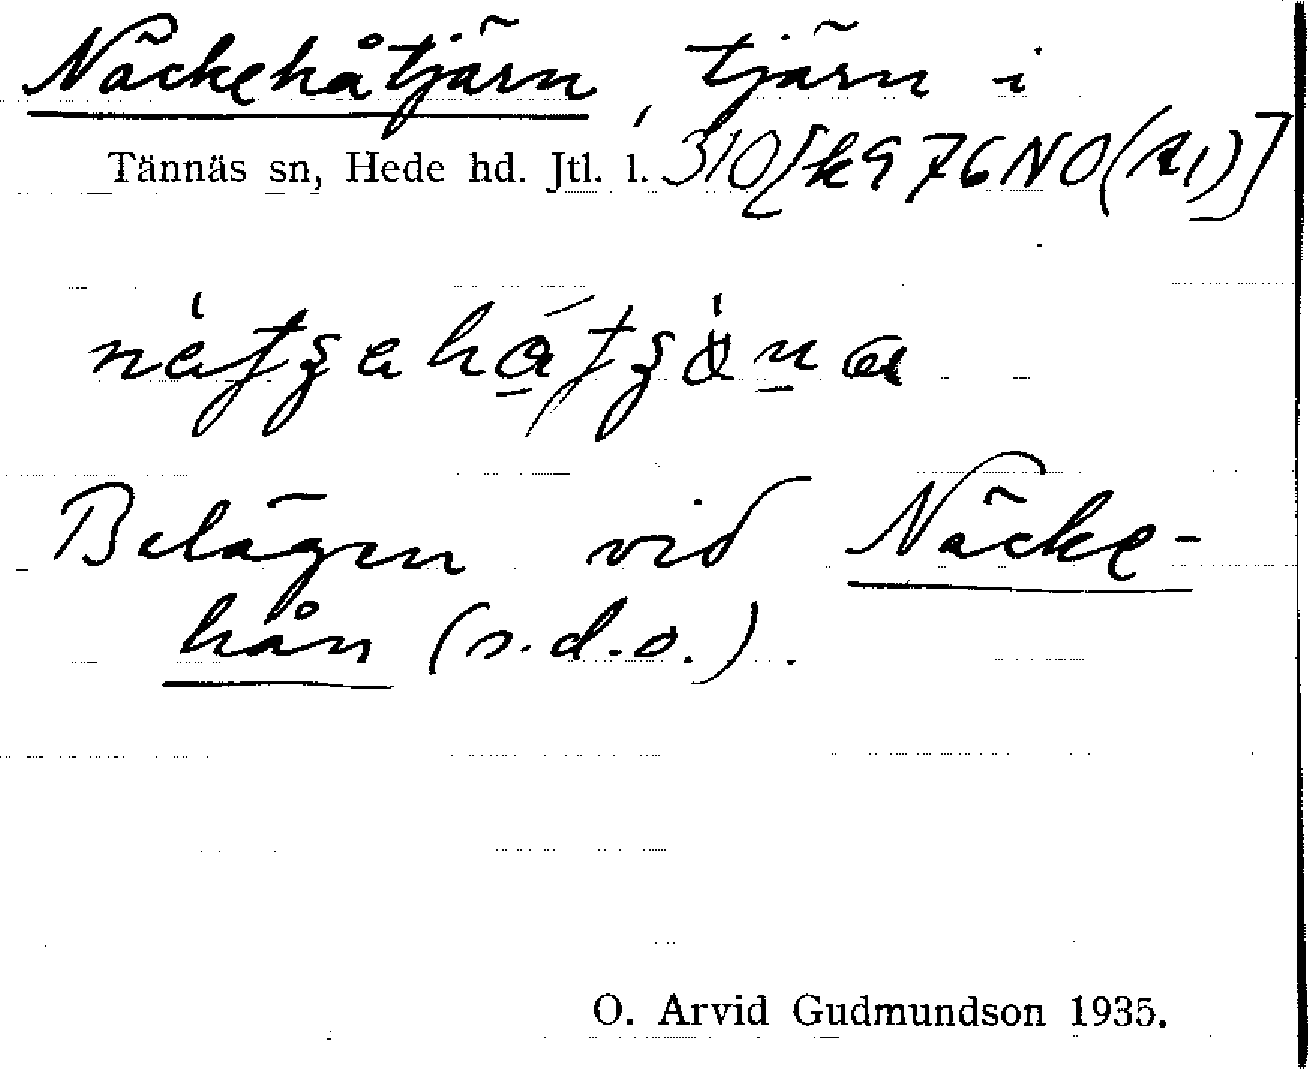 Näckehåtjärn, tjärn i
Tännäs sn, Hede hd. Jtl. l. 310[k976NO(A1)]
Belägen vid Näcke-
hån (s.d.o.).
O. Arvid Gudmundson 1935.